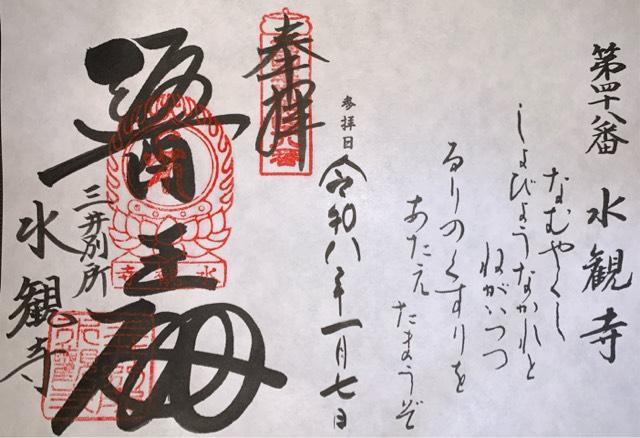 第四十八番 水観寺
なむやくし
しょびょうなかれと
ねがいつつ
るりのくすりを
あたえ たまうぞ
参拝日
令和八年一月七日
奉拝
醫王殿
三井別所
水観寺